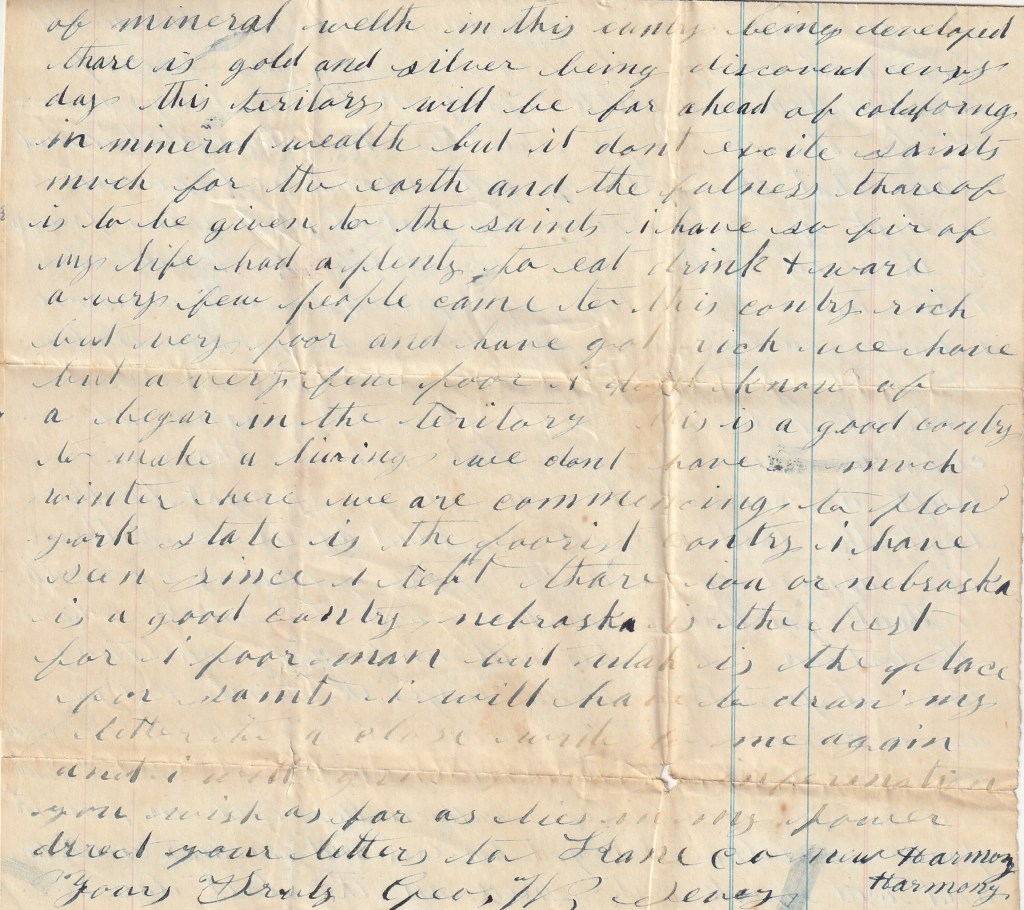 of mineral welth in this cuntry being developed
thare is gold and silver being discoverd evry
day this teritory will be far ahead of calaforny
in mineral wealth but it dont excite saints
much for the earth and the fulness thareof
is to be given to the saints i have so fir of
my life had a plenty to eat drink + ware
a very few people came to this contry rich
but very poor and have got rich we have
but a very few poor i dont know of
a begar in the teritory this is a good contry
to make a living we dont have much
winter here we are commencing to plow
york state is the poorist contry i have
seen since i left thare ioa or nebraska
is a good contry nebraska is the best
for i poor man but utah is the place
for saints i will have to draw my
letter to a close write to me again
and i will information
you wish as far as lies in my power
direct your letters to Co new Harmony
Harmony
Yours Truly Geo. W.